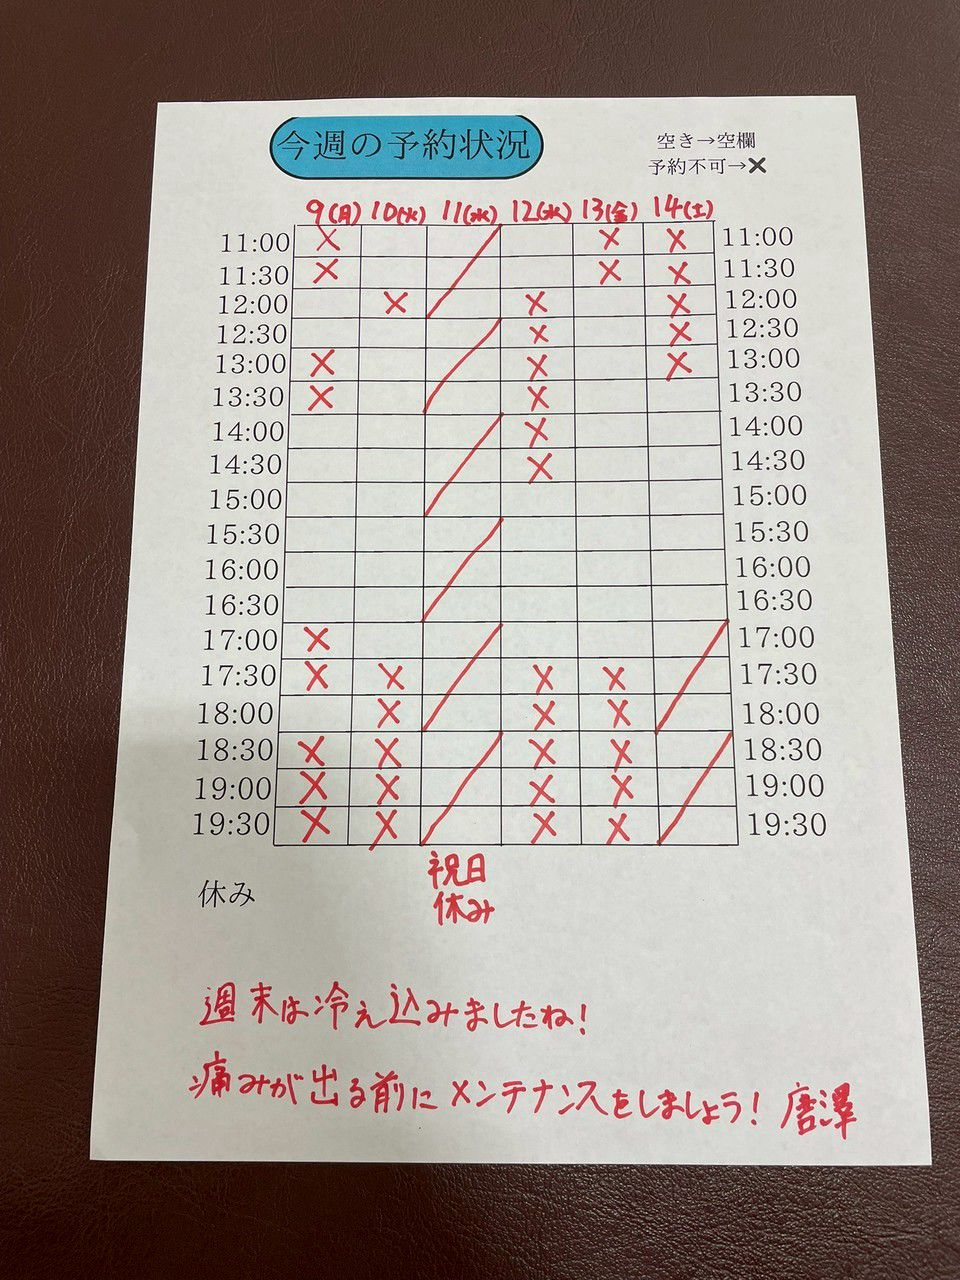 今週の予約状況
空き→空欄
予約不可→✕
9(月) 10(火) 11(水) 12(水) 13(金) 14(土)
11:00 × × × 11:00
11:30 × × × 11:30
12:00 × × × 12:00
12:30 × × 12:30
13:00 × × × 13:00
13:30 × × 13:30
14:00 × 14:00
14:30 × 14:30
15:00 15:00
15:30 15:30
16:00 16:00
16:30 16:30
17:00 × 17:00
17:30 × × × × 17:30
18:00 × × × 18:00
18:30 × × × × 18:30
19:00 × × × × 19:00
19:30 × × × × 19:30
休み
祝日
休み
週末は冷え込みましたね!
痛みが出る前にメンテナンスをしましょう! 唐澤